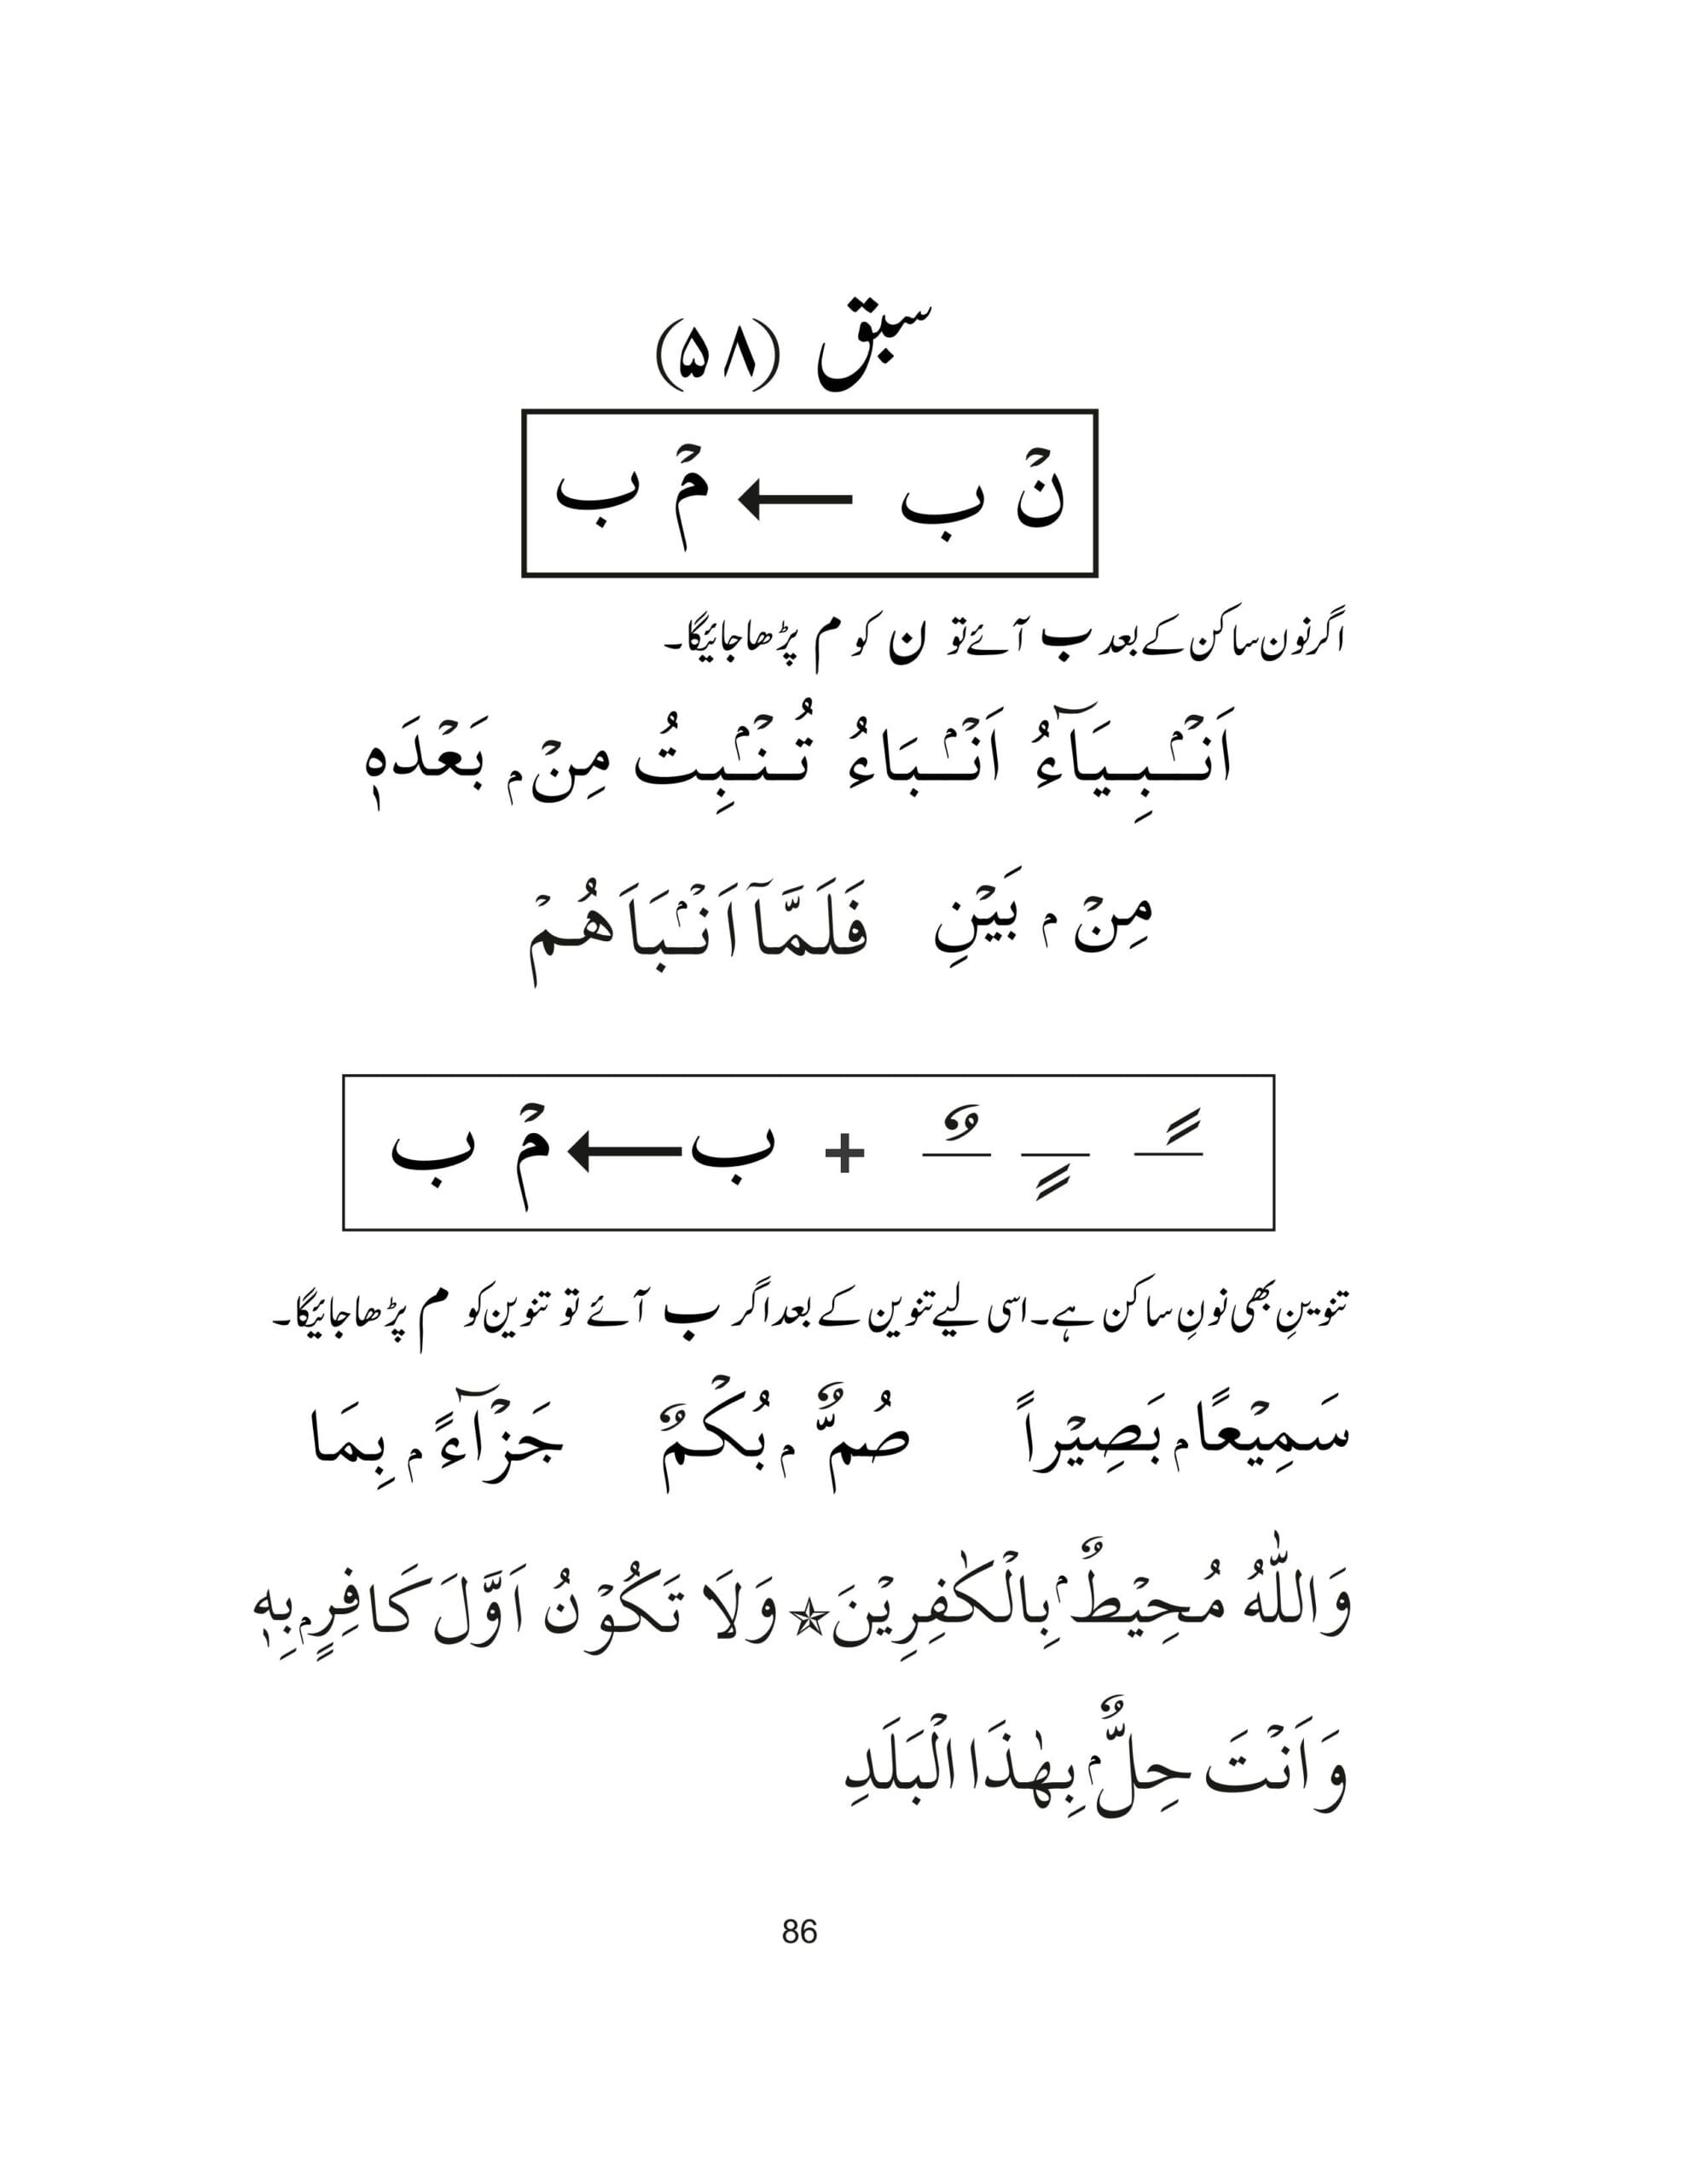 سبق (۵۸)
نْ ب ← مْ ب
اگر نون ساکن کے بعد ب آئے تو ن کو م پڑھا جائیگا۔
اَنْۢبِيَآءُ اَنْۢبَاءُ تُنْۢبِتُ مِنْۢ بَعْدَهٖ
مِنْۢ بَيْنِ فَلَمَّآ اَنْۢبَاَهُمْ
ـً ـٍ ـٌ + ب ← مْ ب
تنوینِ بھی نونِ ساکن ہے۔ اسی لیے تنوین کے بعد اگر ب آئے تو تنوین کو م پڑھا جائیگا۔
سَمِيْعًاۢ بَصِيْراً صُمٌّۢ بُكْمٌ جَزْآءًۢ بِمَا
وَاللّٰهُ مُحِيْطٌۢ بِالْكٰفِرِيْنَ ☆ وَلَا تَكُوْنُ اَوَّلَ كَافِرٍۢ بِهٖ
وَاَنْتَ حِلٌّۢ بِهٰذَا الْبَلَدِ
86